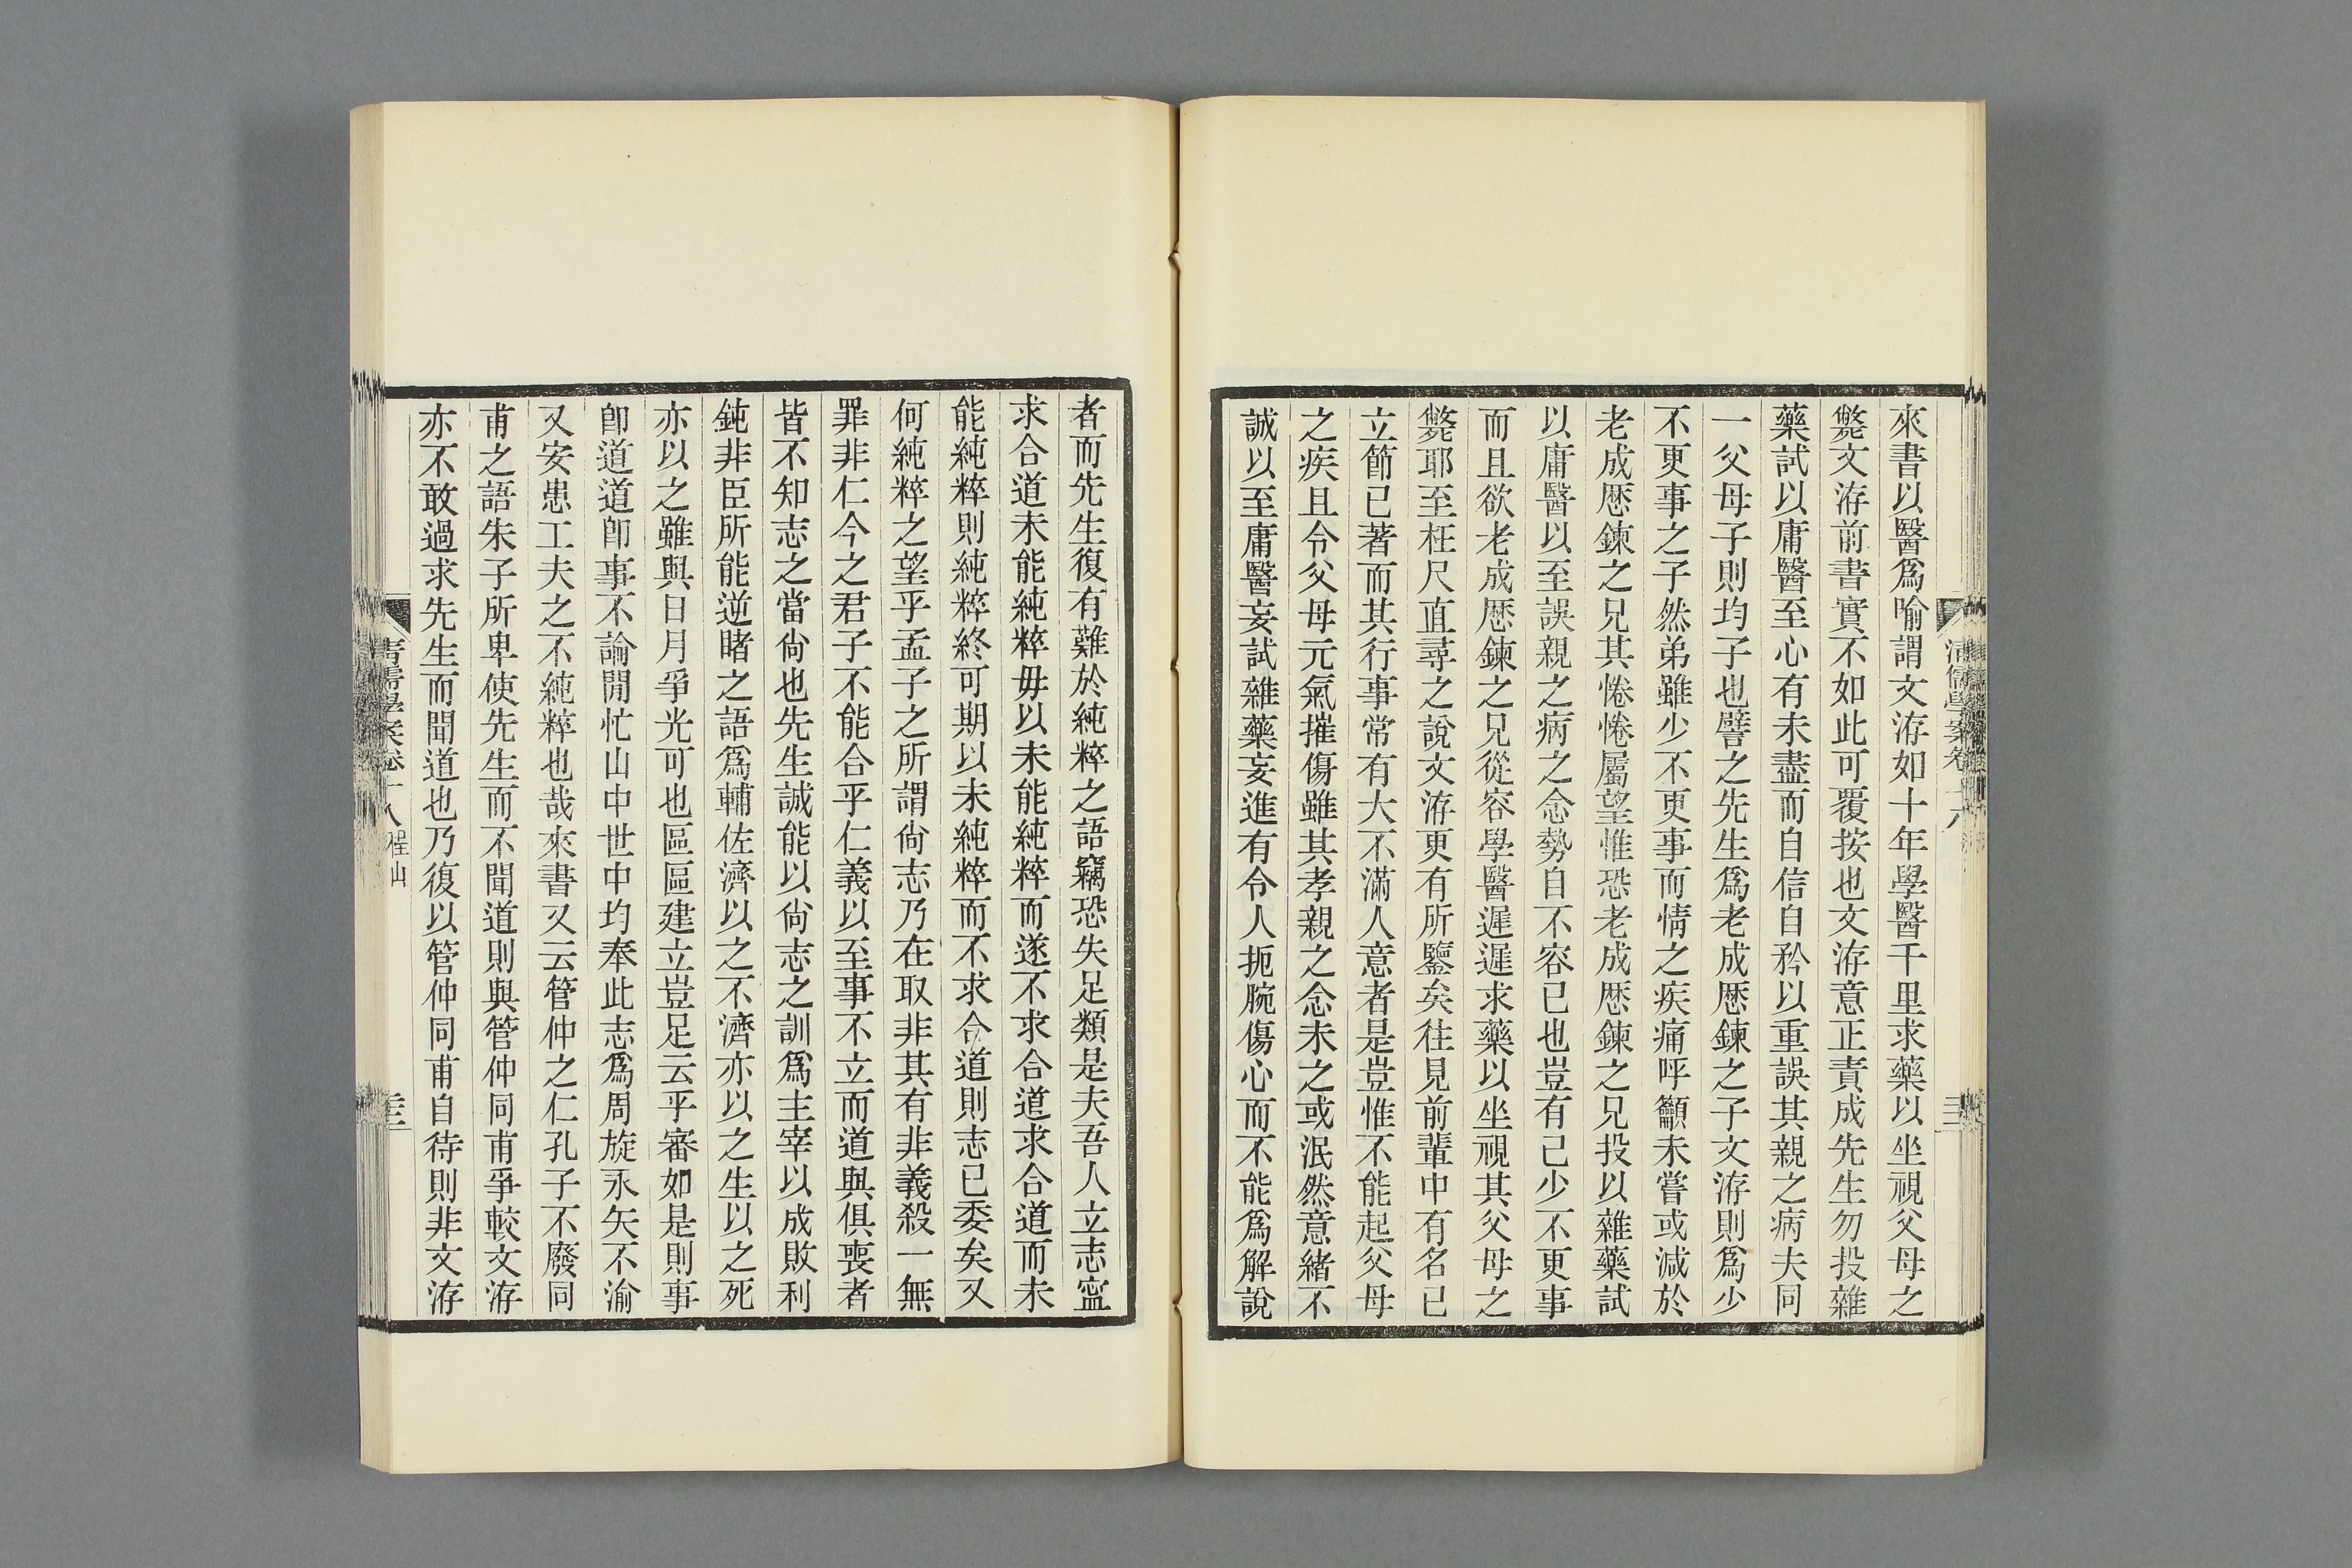 來書以醫爲喻謂文洊如十年學醫千里求藥以坐視父母之
斃文洊前書實不如此可覆按也文洊意正責成先生勿投雜
藥試以庸醫至心有未盡而自信自矜以重誤其親之病夫同
一父母子則均子也譬之先生爲老成歷鍊之子文洊則爲少
不更事之子然弟雖少不更事而情之疾痛呼籲未嘗或減於
老成歷鍊之兄其惓惓屬望惟恐老成歷鍊之兄投以雜藥試
以庸醫以至誤親之病之念勢自不容已也豈有已少不更事
而且欲老成歷鍊之兄從容學醫遲遲求藥以坐視其父母之
斃耶至枉尺直尋之說文洊更有所鑒矣往見前輩中有名已
立節已著而其行事常有大不滿人意者是豈惟不能起父母
之疾且令父母元氣摧傷雖其孝親之念未之或泯然意緒不
誠以至庸醫妄試雜藥妄進有令人扼腕傷心而不能爲解說
者而先生復有難於純粹之語竊恐失足類是夫吾人立志寧
求合道未能純粹毋以未能純粹而遂不求合道求合道而未
能純粹則純粹終可期以未純粹而不求合道則志已委矣又
何純粹之望乎孟子之所謂尙志乃在取非其有非義殺一無
罪非仁今之君子不能合乎仁義以至事不立而道與俱喪者
皆不知志之當尙也先生誠能以尙志之訓爲主宰以成敗利
鈍非臣所能逆睹之語爲輔佐濟以之不濟亦以之生以之死
亦以之雖與日月爭光可也區區建立豈足云乎審如是則事
卽道道卽事不論閒忙山中世中均奉此志爲周旋永矢不渝
又安患工夫之不純粹也哉來書又云管仲之仁孔子不廢同
甫之語朱子所卑使先生而不聞道則與管仲同甫爭較文洊
亦不敢過求先生而聞道也乃復以管仲同甫自待則非文洊